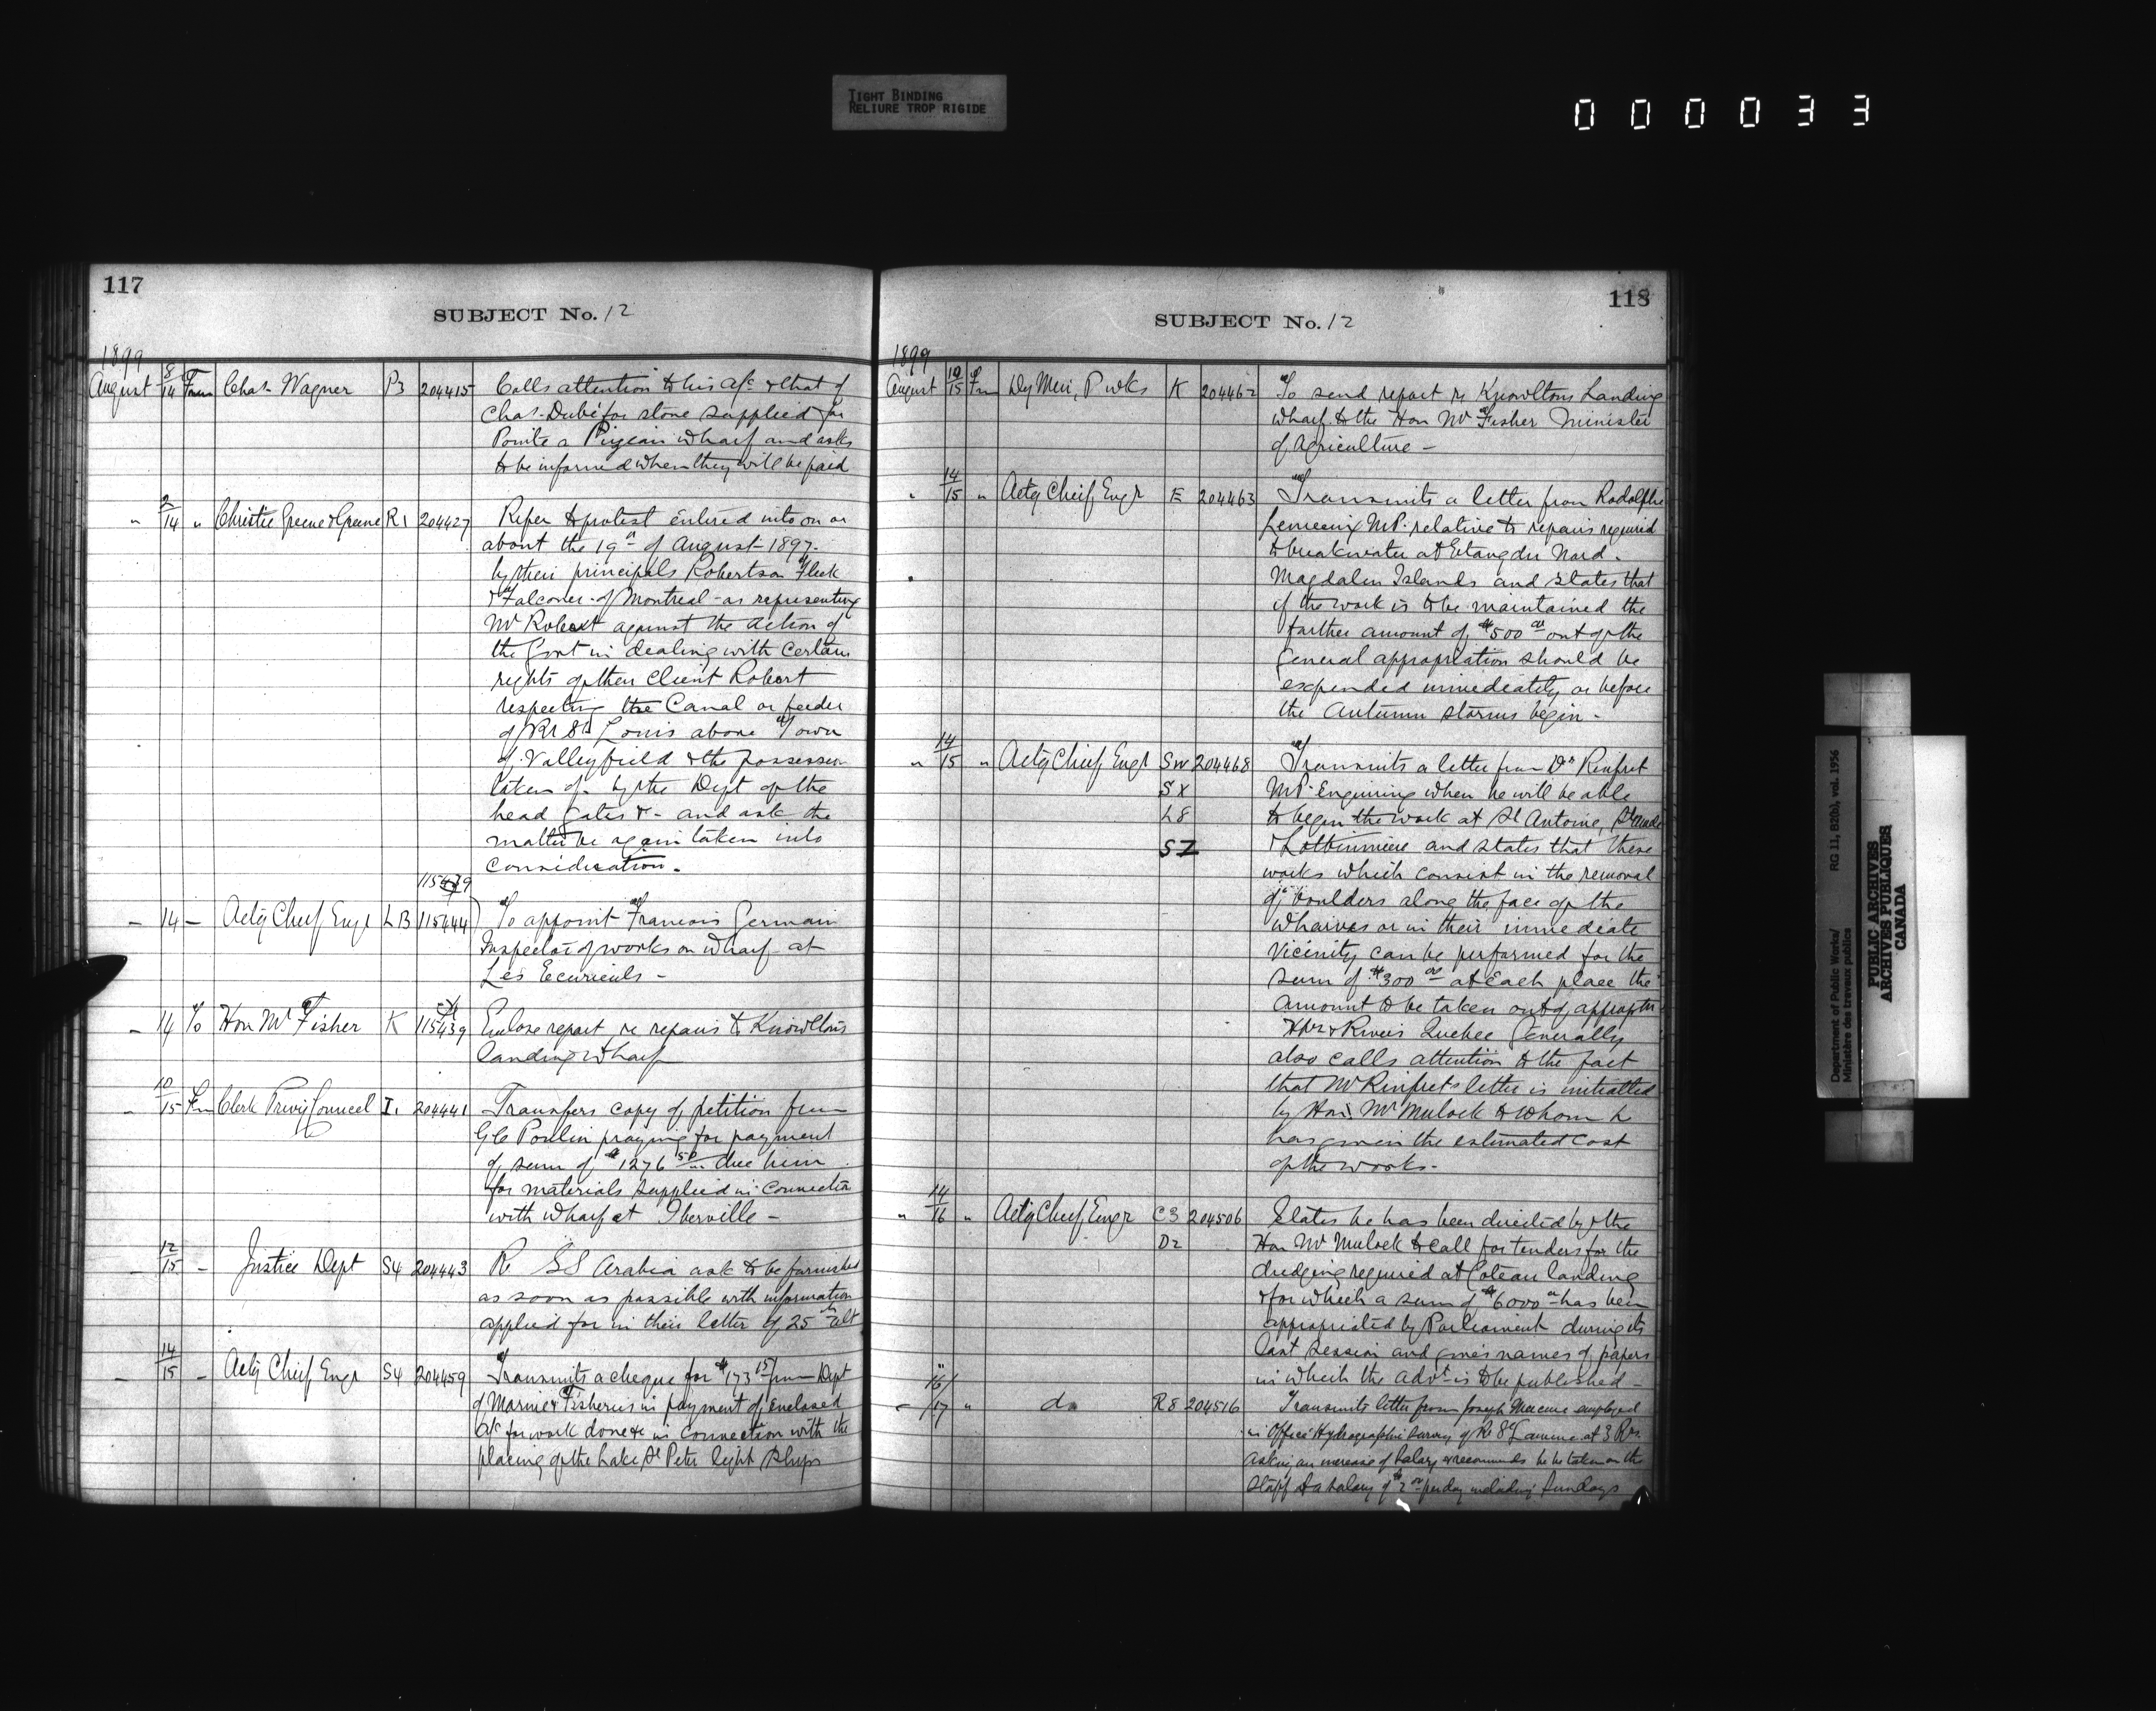 TIGHT BINDING
RELIURE TROP RIGIDE
000033
117
SUBJECT No. 12
1899
August 8/14 From Chas. Wagner P3 204415 Calls attention to his a/c & that of
Chas. Dubé for stone supplied for
Pointe a Pizeau wharf and asks
to be informed when they will be paid
" 2/14 " Christie Greene & Greene R1 204427 Refer to protest entered into on or
about the 19th of August 1897
by their principals Robertson Fleet
& Falconer of Montreal as representing
Mr Robert against the action of
the Govt in dealing with certain
rights of their Client Robert
respecting the Canal or feeder
of Rr St Louis above Town
of Valleyfield & the possession
taken of by the Dept of the
head gates &- and ask the
matter be again taken into
consideration.
- 14 - Actg Cheif Engr LB 115444 To appoint Francois Germain
Inspector of works on wharf at
Les Ecurieuls -
- 14 To Hon Mr Fisher K 115439 Enclose report re repairs to Knowltons
landing wharf
- 10/15 Fm Clerk Privy Councel I1 204441 Transfers copy of petition from
Poulin praying for payment
of sum of $1276 50 due him
for materials supplied in connection
with wharf at Iberville -
- 12/15 - Justice Dept S4 204443 Re SS Arabia ask to be furnished
as soon as possible with information
applied for in their letter of 25th ult
- 14/15 - Actg Cheif Engr S4 204459 Transmits a cheque for $173 15 from Dept
of Marine & Fisheries in payment of enclosed
a/c for work done &c in connection with the
placing of the Lake St Peter light ships
118
SUBJECT No. 12
1899
August 10/15 Fm Dy Min, P wks K 204462 To send report re Knowltons Landing
wharf to the Hon Mr Fisher Minister
of Agriculture -
" 14/15 " Actg Cheif Engr E 204463 Transmits a letter from Rodolphe
Lemieux MP. relative to repairs required
to breakwater at Etang du Nord.
Magdalen Islands and states that
if the work is to be maintained the
further amount of $500 00 out of the
General appropriation should be
expended immediately or before
the Autumn storms begin -
" 14/15 " Actg Cheif Engr SW 204468 Transmits a letter from Dr Rinfret
SX MP. Enquiring when he will be able
L8 to begin the work at St Antoine,
SZ & Lotbiniere and states that these
works which consist in the removal
of boulders along the face of the
wharves or in their immediate
vicinity can be performed for the
sum of $300 00 at each place the
amount to be taken out of appropn
Hbr & Rivers Quebec Generally
also calls attention to the fact
that Mr Rinfrets letter is initialled
by Hon Mr Mulock to whom he
has given the estimated cost
of the works -
" 14/16 " Actg Cheif Engr C3 204506 States he has been directed by the
D2 Hon Mr Mulock to call for tenders for the
dredging required at Coteau landing
& for which a sum of $6000 00 has been
appropriated by Parliament during its
last session and gives names of papers
in which the advt is to be published -
- 16/17 " do R8 204516 Transmits letter from Joseph employed
in Office Hydrographic Survey of Rr St Lawrence at 3 Rrs.
asking an increase of salary & recommends he be taken on the
staff at a salary of $2 00 per day including Sundays
Department of Public Works/ RG 11, B2(b), vol. 1956
Ministère des travaux publics
PUBLIC ARCHIVES
ARCHIVES PUBLIQUES
CANADA